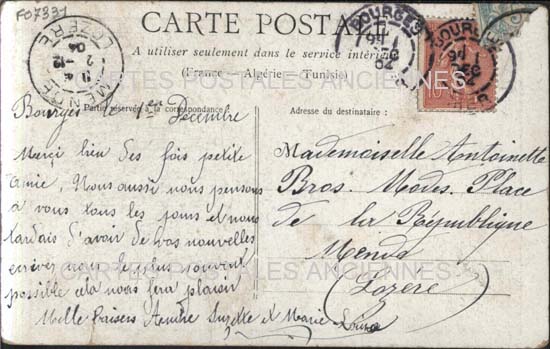 F07331
CARTE POSTALE
A utiliser seulement dans le service intérieur
(France - Algérie - Tunisie)
Partie réservée à la correspondance
Adresse du destinataire :
BOURGES
BOURGES
MENDE
LOZERE
CARTES POSTALES ANCIENNES
CARTES POSTALES ANCIENNES
Bourges le 1er Décembre
Merci bien des fois petite
amie, Nous aussi nous pensons
à vous tous les jours et nous
tardais d'avoir de vos nouvelles
écrivez nous le plus souvent
possible cela nous fera plaisir
Mille baisers Andrée Suzette et Marie Louise
Mademoiselle Antoinette
Bros. Modes. Place
de la République
Mende
Lozère